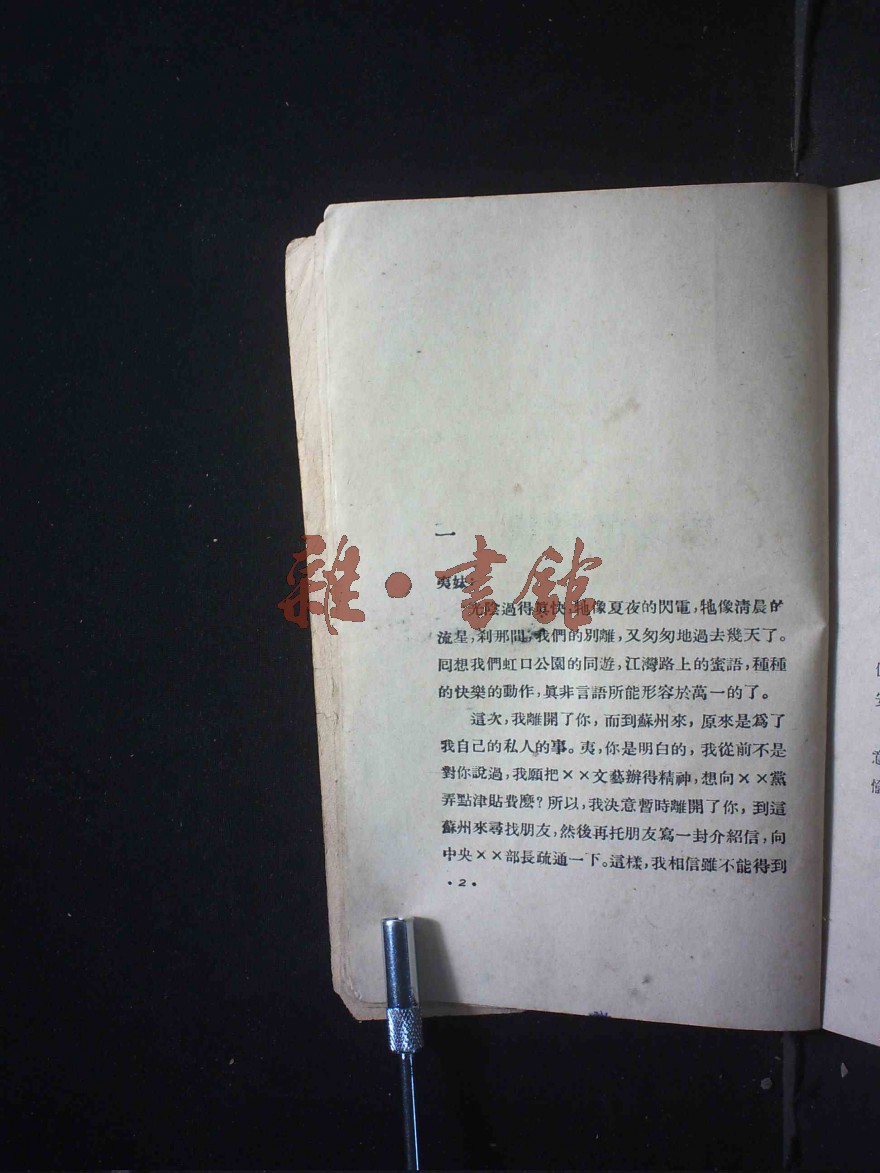 一
夷妹：
光陰過得眞快，牠像夏夜的閃電，牠像清晨的
流星，刹那間，我們的別離，又匆匆地過去幾天了。
囘想我們虹口公園的同遊，江灣路上的蜜語，種種
的快樂的動作，眞非言語所能形容於萬一的了。
這次，我離開了你，而到蘇州來，原來是爲了
我自己的私人的事。夷，你是明白的，我從前不是
對你說過，我願把××文藝辦得精神，想向××黨
弄點津貼費麼？所以，我決意暫時離開了你，到這
蘇州來尋找朋友，然後再托朋友寫一封介紹信，向
中央××部長疏通一下。這樣，我相信雖不能得到
·2·
雜·書館